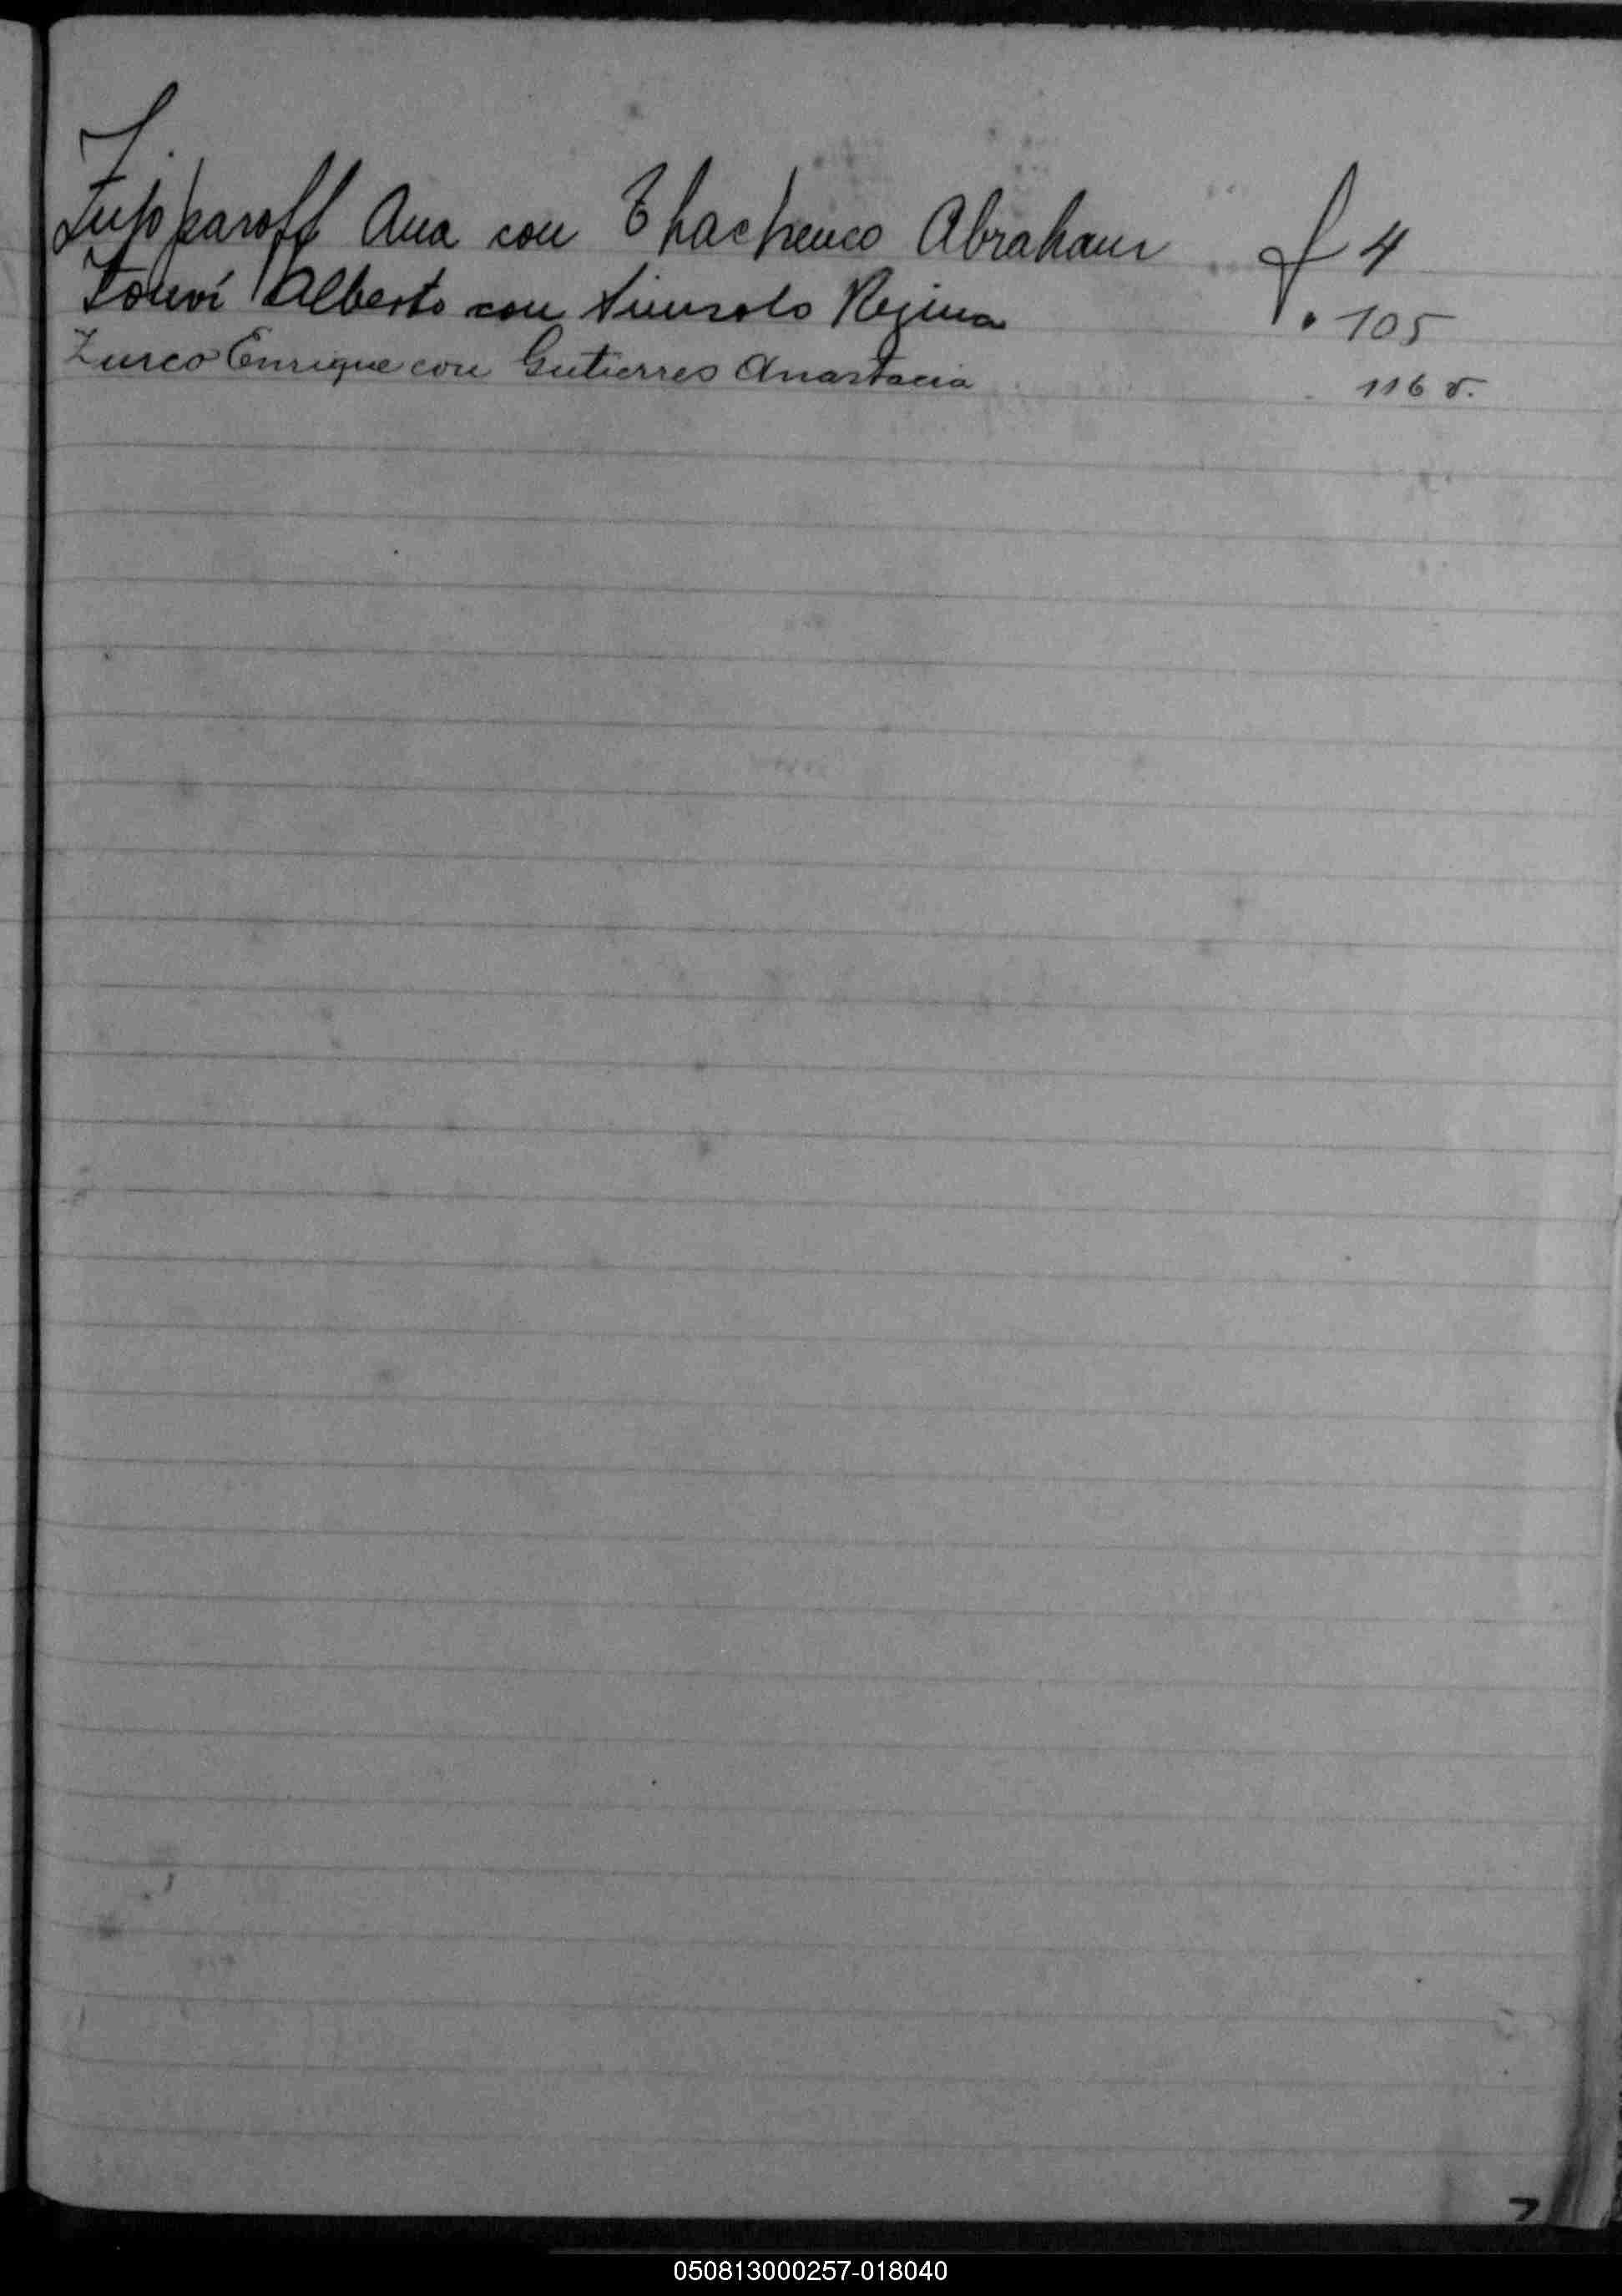 Z.
Zupparoff Ana con Thachenco Abraham f 4
Alberto con Regina " 105
Zurco Enrique con Gutierres Anastacia 116 v.
Z
050813000257-018040